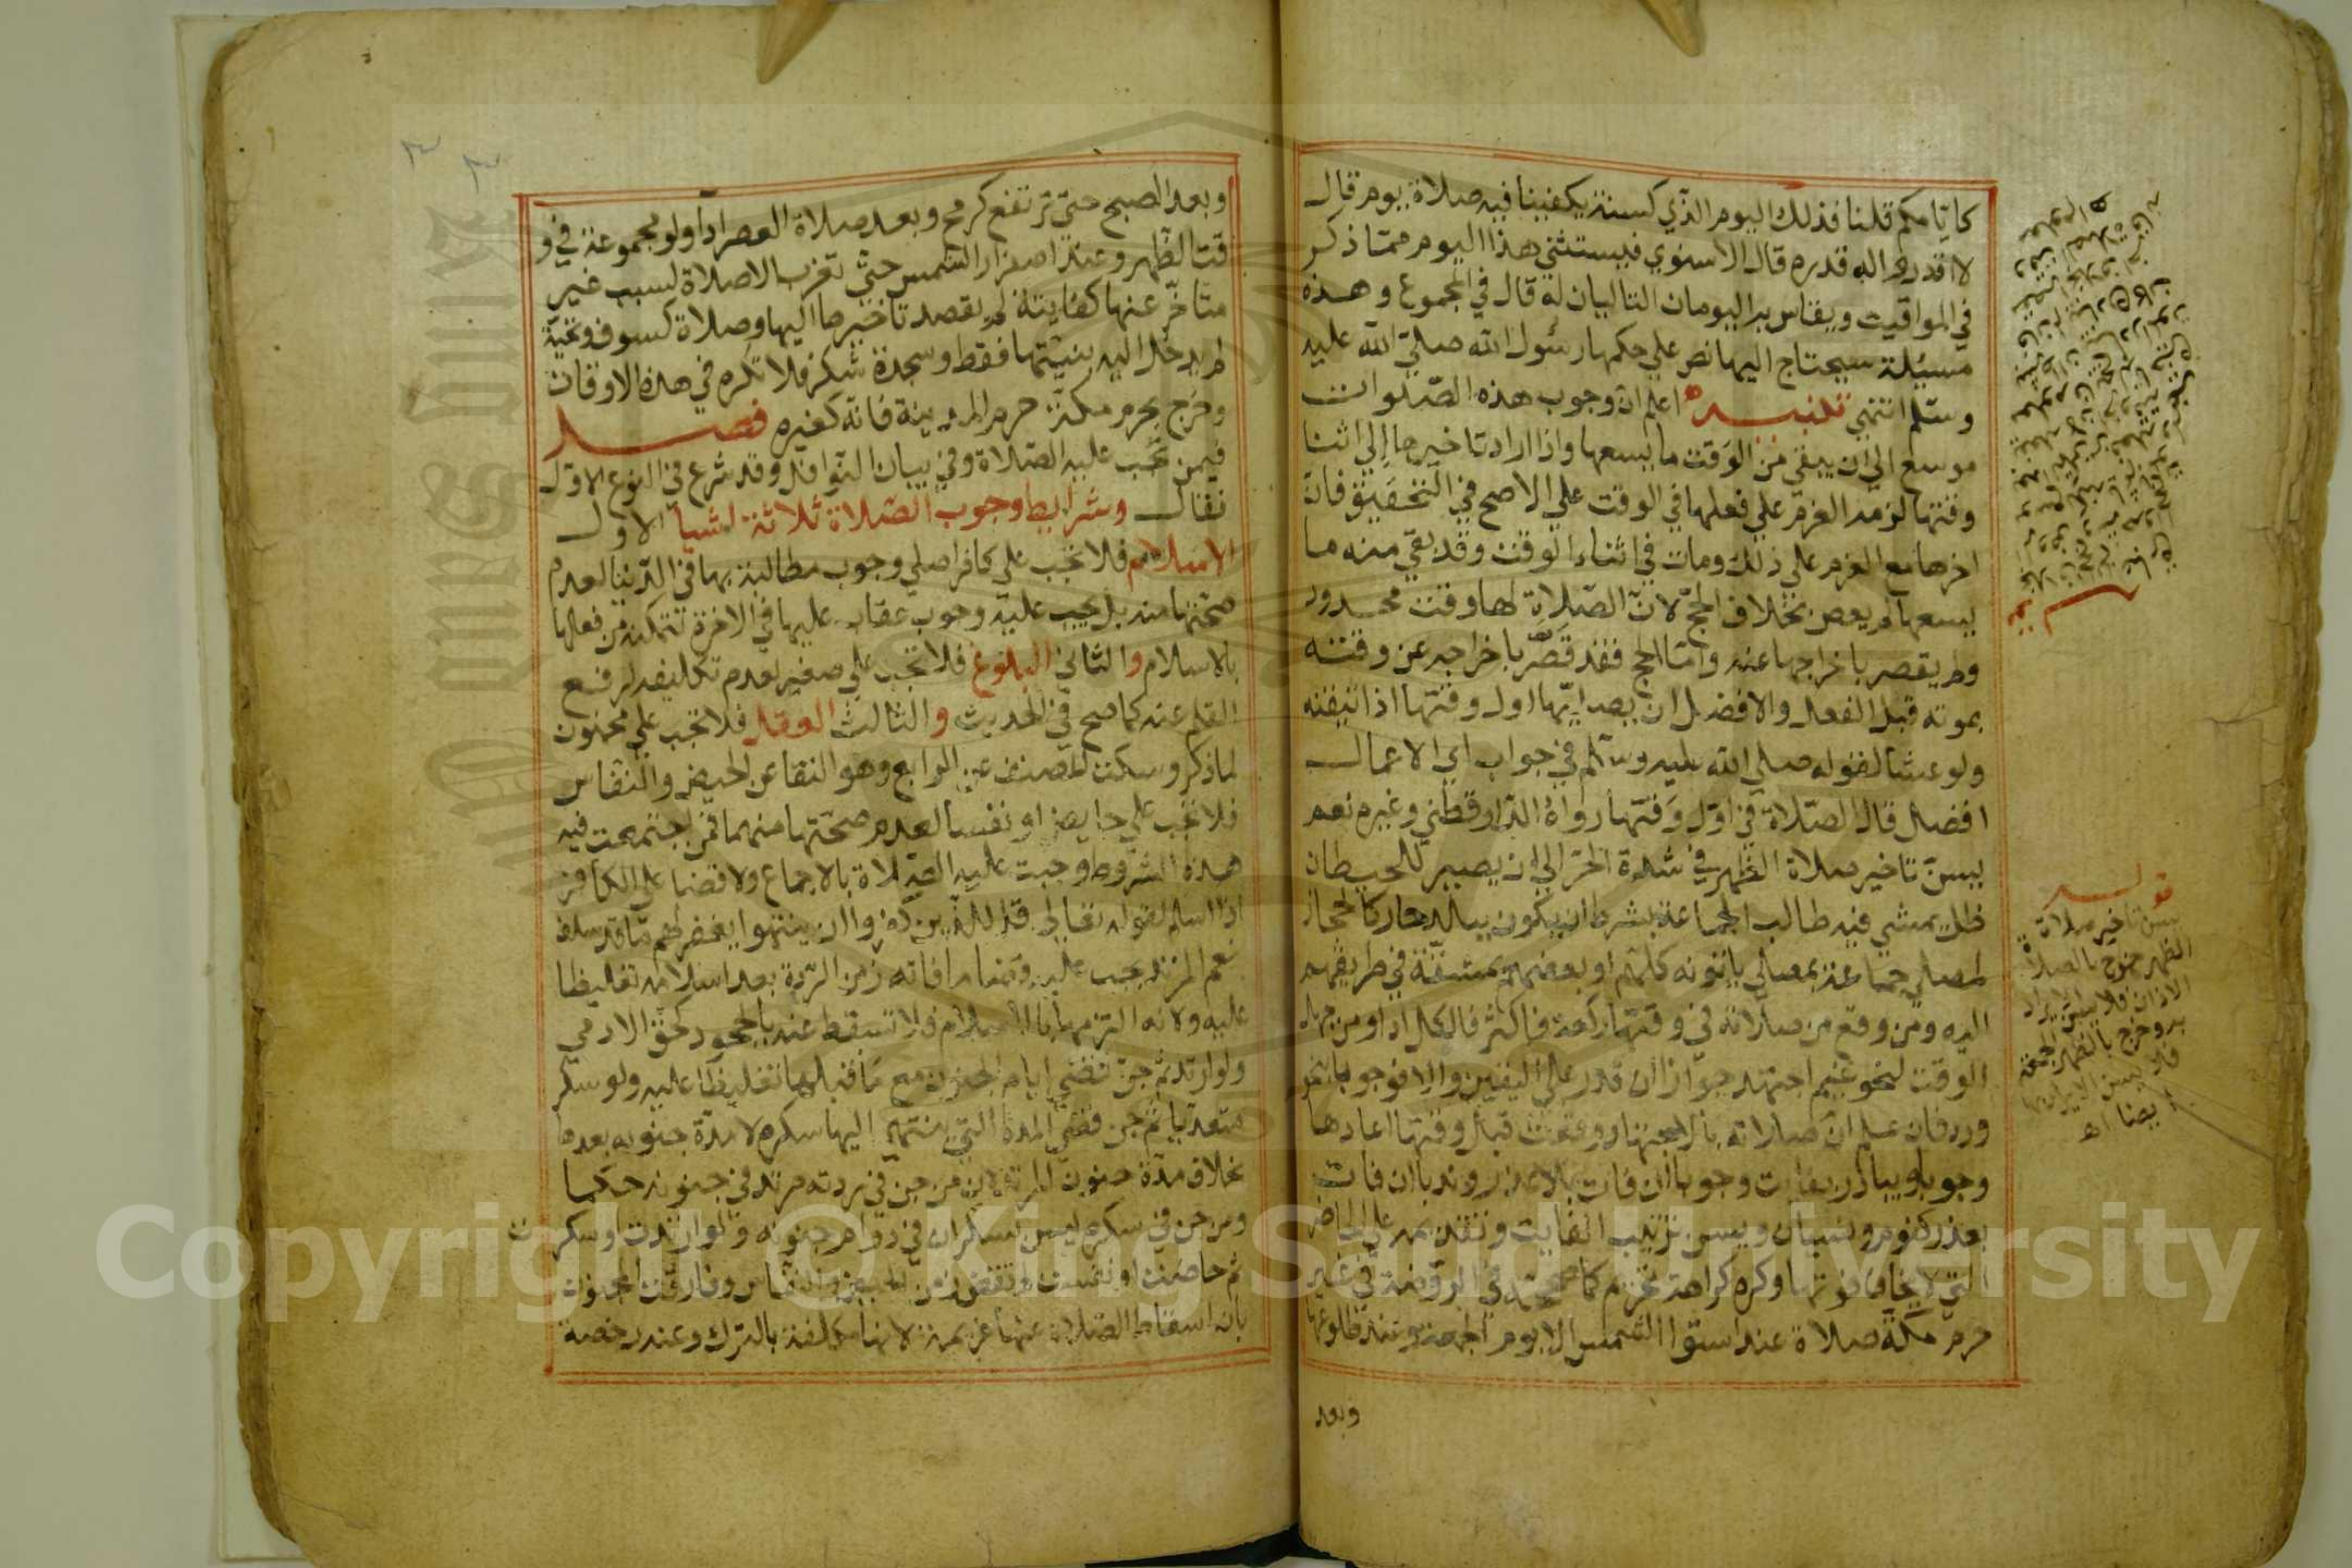 كايامكم قلنا فذلك اليوم الذي كسنة يكفينا فيه صلاة يوم قال
لا اقدروا له قدره قال الاسنوي فيستثنى هذا اليوم مما ذكر
في المواقيت ويقاس به اليومان التاليان له قال في المجموع وهذه
مسيلة سيحتاج اليها نص علي حكمها رسول الله صلي الله عليه
وسلم انتهي تنبيه اعلم ان وجوب هذه الصلوات
موسع الي ان يبقي من الوقت ما يسعها واذا اراد تاخيرها الي اثنا
وقتها لزمه العزم علي فعلها في الوقت علي الاصح في التحقيق فان
اخرها مع العزم علي ذلك ومات في اثناء الوقت وقد بقي منه ما
يسعها لم يعص بخلاف الحج لان الصلاة لها وقت محدود
ولم يقصر باخراجها عنه واما الحج فقد قصر باخراجه عن وقته
بموته قبل الفعل والافضل ان يصليها اول وقتها اذا تيقنه
ولو عشا لقوله صلي الله عليه وسلم في جواب اي الاعمال
افضل قال الصلاة في اول وقتها رواه الدارقطني وغيره نعم
يسن تاخير صلاة الظهر في شدة الحر الي ان يصير للحيطان
ظل يمشي فيه طالب الجماعة بشرط ان يكون ببلد حار كالحجاز
لمصلي جماعة بمصلي ياتونه كلهم او بعضهم بمشقة في طريقهم
اليه ومن وقع من صلاته في وقتها ركعة فاكثر فالكل ادا ومن جهل
الوقت لنحو غيم اجتهد جوازا ان قدر علي اليقين والا فوجوبا بنحو
ورد فان علم ان صلاته بالاجتهاد وقعت قبل وقتها اعادها
وجوبا ويبادر بفايت وجوبا ان فات بلا عذر وندبا ان فات
بعذر كنوم ونسيان ويسن ترتيب الفايت وتقديمه علي الحاضرة
التي لا يخاف فوتها وكره كراهة تحريم كما صححه في الروضة في غير
حرم مكة صلاة عند استوا الشمس الا يوم الجمعة وعند طلوعها
وبعد
قوله
يسن تاخير صلاة
الظهر خرج بالصلاة
الاذان فلا يسن الابراد
به وخرج بالظهر الجمعة
فلا يسن الابراد بها
ايضا اه
وبعد الصبح حتي ترتفع كرمح وبعد صلاة العصر ادا ولو مجموعة في و
قت الظهر وعند اصفرار الشمس حتي تغرب الا صلاة لسبب غير
متاخر عنها كفايتة لم يقصد تاخيرها اليها وصلاة كسوف وتحية
لم يدخل اليه بنيتها فقط وسجدة شكر فلا تكره في هذه الاوقات
وخرج بحرم مكة حرم المدينة فانه كغيره فصل
فيمن تجب عليه الصلاة وفي بيان النوافل وقد شرع في النوع الاول
فقال وشرايط وجوب الصلاة ثلاثة اشيا الاول
الاسلام فلا تجب علي كافر اصلي وجوب مطالبة بها في الدنيا لعدم
صحتها منه بل يجب عليه وجوب عقاب عليها في الاخرة لتمكنه من فعلها
بالاسلام والثاني البلوغ فلا تجب علي صغير لعدم تكليفه لرفع
القلم عنه كما صح في الحديث والثالث العقل فلا تجب علي مجنون
لما ذكر وسكت المصنف عن الرابع وهو النقا عن الحيض والنفاس
فلا تجب علي حايض او نفسا لعدم صحتها منهما فمن اجتمعت فيه
هذه الشروط وجبت عليه الصلاة بالاجماع ولا قضا علي الكافر
اذا اسلم لقوله تعالي قل للذين كفروا ان ينتهوا يغفر لهم ما قد سلف
نعم المرتد يجب عليه قضا ما فاته زمن الردة بعد اسلامه تغليظا
عليه ولانه التزمها بالاسلام فلا تسقط عنه بالجحود كحق الادمي
ولو ارتد ثم جن قضي ايام الجنون مع ما قبلها تغليظا عليه ولو سكر
متعديا ثم جن قضي المدة التي ينتهي اليها سكره لا مدة جنونه بعدها
بخلاف مدة جنون المرتد لان من جن في ردته مرتد في جنونه حكما
ومن جن في سكره ليس بسكران في دوام جنونه ولو ارتدت او سكرت
ثم حاضت او نفست لم تقض زمن الحيض والنفاس وفارقت المجنون
بان اسقاط الصلاة عنها عزيمة لانها مكلفة بالترك وعنه رخصة
Copyright © King Saud University